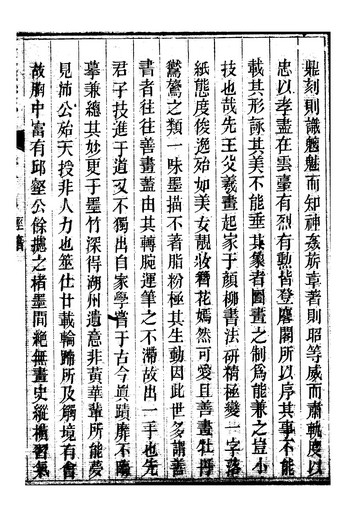 鼎刻則識魑魅而知神姦旂章著則昭等威而肅軌度以
忠以孝盡在雲臺有烈有勳皆登麐閣所以序其事不能
載其形詠其美不能垂其象者圖畫之制為能兼之豈小
技也哉先王父羲畫起家于顏柳書法研精極變一字落
紙態度俊逸殆如美女靚妝簪花嫣然可愛且善畫牡丹
鴛鴦之類一味墨描不着脂粉極其生動因此世多謂善
書者往往善畫蓋由其轉腕運筆之不滯故出一手也先
君子技進于道又不獨出自家學嘗于古今眞蹟靡不臨
摹兼總其妙更于墨竹深得湖州遺意非黃華輩所能夢
見沛公殆天授非人力也筮仕廿載輪蹄所及觸境有會
故胸中富有邱壑公餘攄之楮墨間絕無畫史縱橫習氣